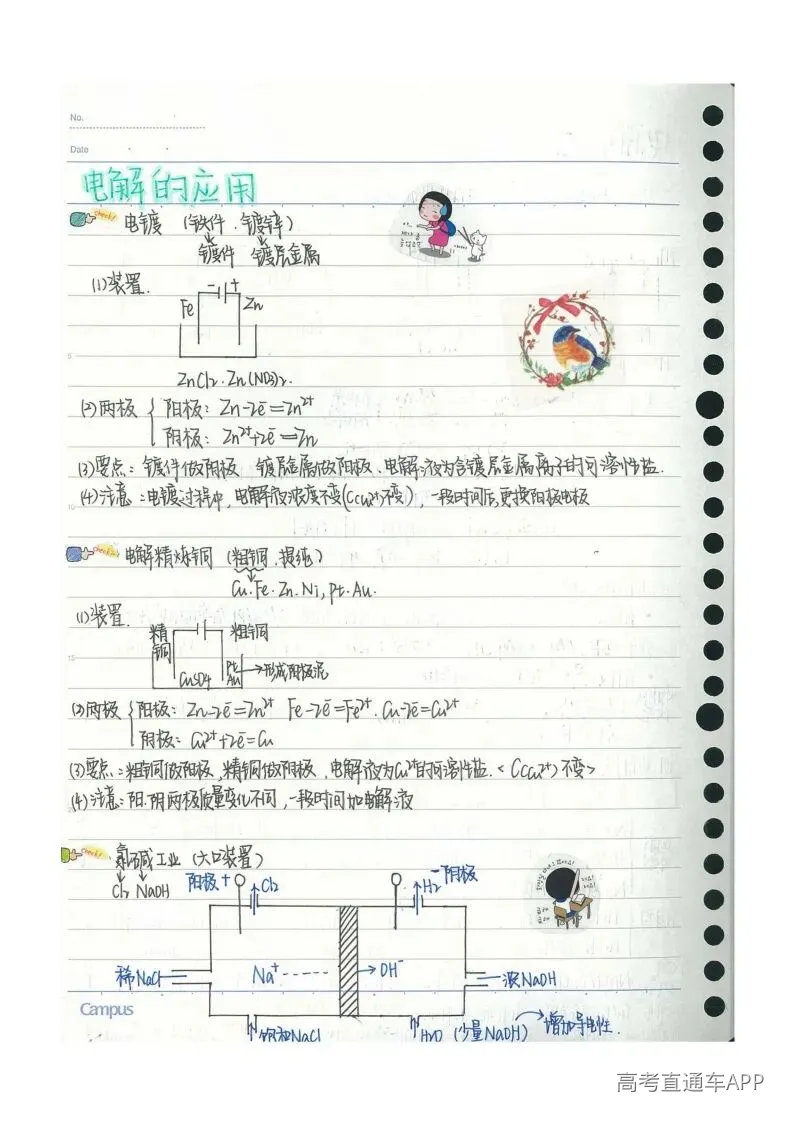 No.
Date
电解的应用
check! 电镀 (铁件、镀锌)
镀件 镀层金属
(1)装置.
- +
Fe Zn
ZnCl2.Zn(NO3)2.
(2)两极 { 阳极: Zn-2e⁻=Zn²⁺
阴极: Zn²⁺+2e⁻=Zn
(3)要点: 镀件做阴极 镀层金属做阳极、电解液为含镀层金属离子的可溶性盐.
(4)注意:电镀过程中,电解液浓度不变(Ccu²⁺不变),一段时间后,更换阳极电极
check! 电解精炼铜 (粗铜、提纯)
Cu.Fe.Zn.Ni,Pt.Au.
(1)装置.
精铜 粗铜
CuSO4 Pt Au →形成阳极泥
(2)两极 { 阳极: Zn-2e⁻=Zn²⁺ Fe-2e⁻=Fe²⁺.Cu-2e⁻=Cu²⁺
阴极: Cu²⁺+2e⁻=Cu
(3)要点:粗铜做阳极,精铜做阴极,电解液为Cu²⁺的可溶性盐.<C(cu²⁺)不变>
(4)注意:阳.阴两极质量变化不同,一段时间加电解液
check! 氯碱工业 (六口装置)
Cl2 NaOH
阳极+ Cl2 H2 -阴极
稀NaCl Na⁺ ----- →OH⁻ 浓NaOH
Campus
饱和NaCl H2O (少量NaOH) 增加导电性.
高考直通车APP